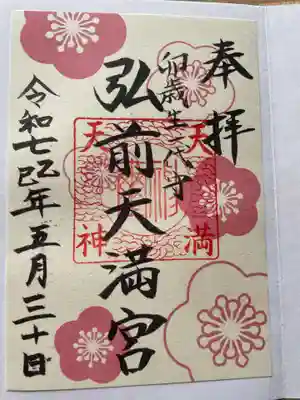 奉拝
卯歳生れ守
弘前天満宮
天満
天神
令和七乙巳年五月三十日